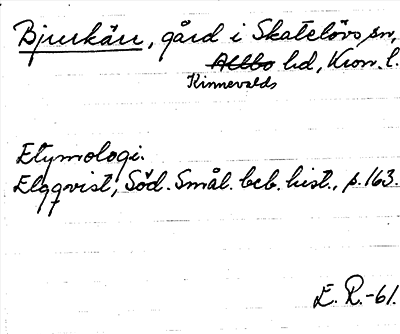 Bjurkärr, gård i Skatelövs sn,
Allbo hd, Kron. l.
Kinnevalds
Etymologi.
Elgqvist, Söd. Smål. beb. hist., p. 163.
E. R.-61.